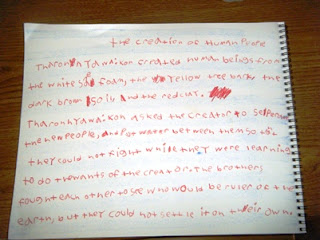 the creation of Human People
Tharonhyawaikon created human beings from
the white sea foam, the Yellow tree bark, the
dark brown soil And the red clay.
Tharonhyawaikon asked the creator to separate
the new people, and put water between them so that
they could not fight while they were learning
to do the wants of the creator. the brothers
fought each other to see who would be ruler of the
earth, but they could not settle it on their own.